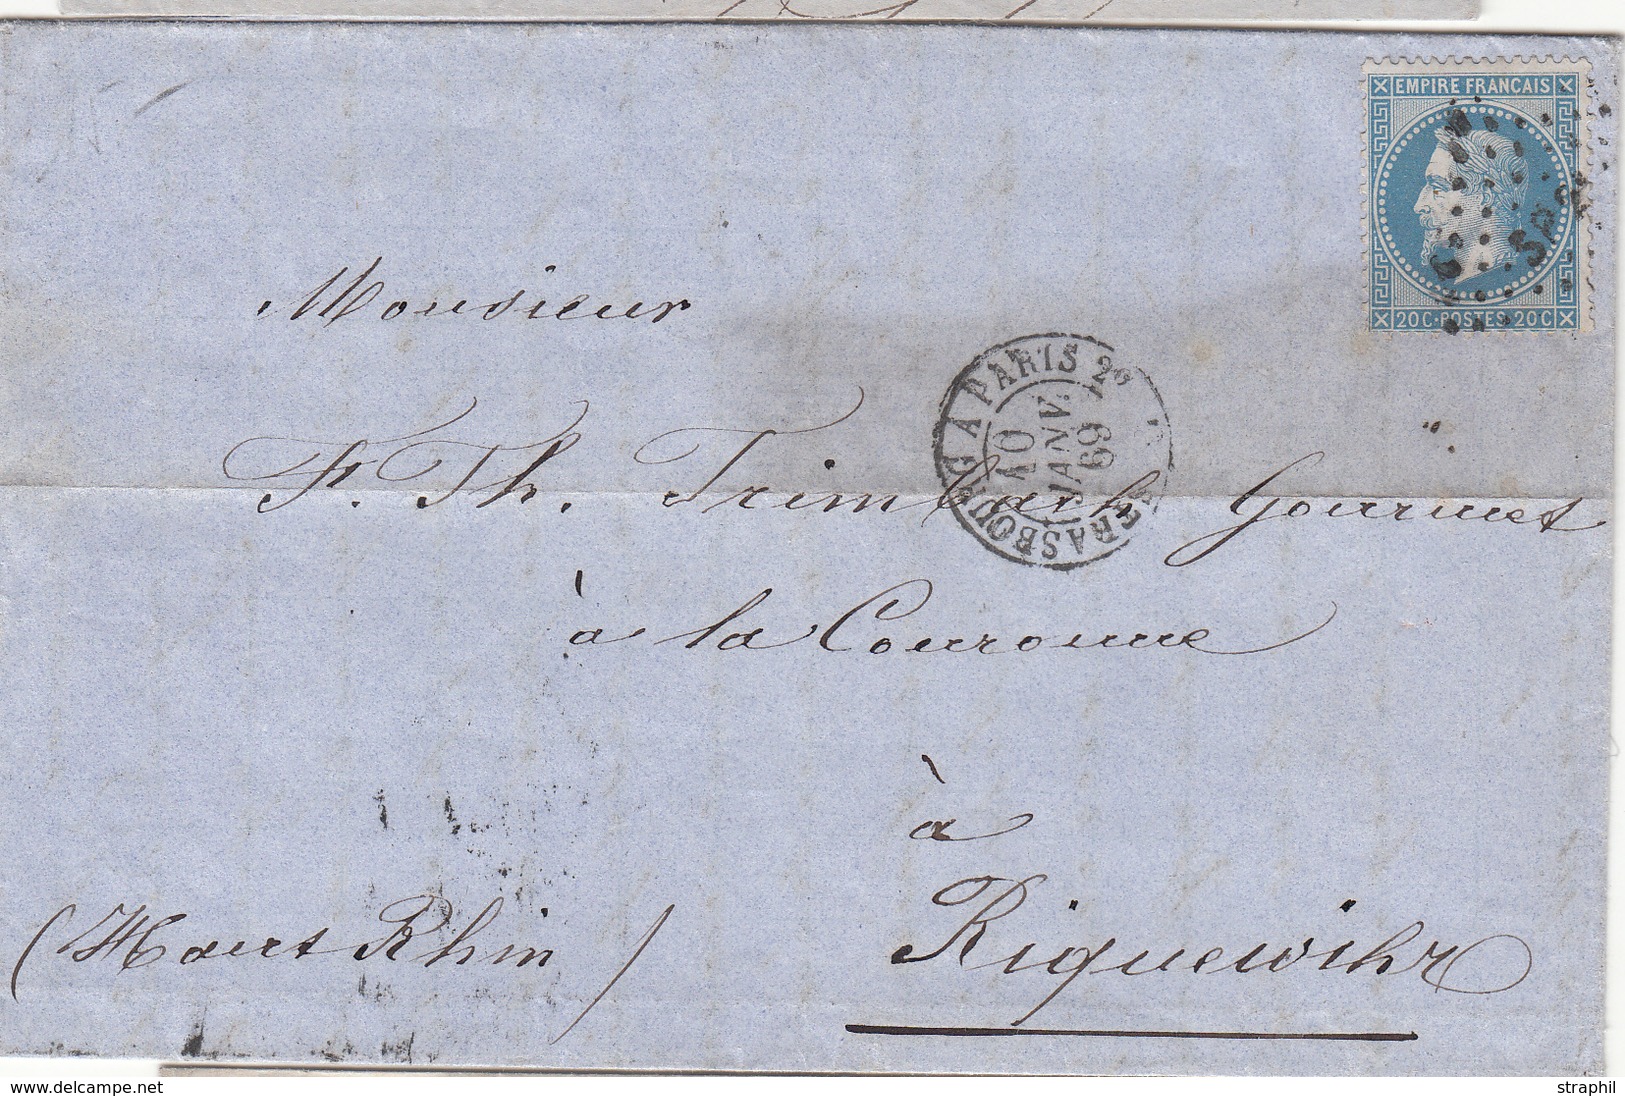 EMPIRE FRANÇAIS
20 C · POSTES · 20 C
SP2º
STRASBOURG A PARIS 2º
10
JANV.
69
Monsieur
F. Th. Trimbach Gourmet
à la Couronne
à
Riquewihr
(Haut Rhin)
www.delcampe.net
straphil